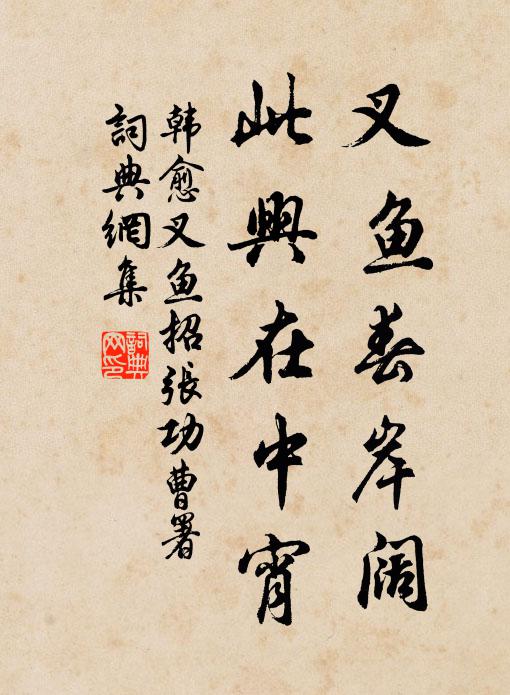 叉鱼春岸阔
此興在中宵
韩愈叉鱼招張功曹署
詞典網集
詞典網印